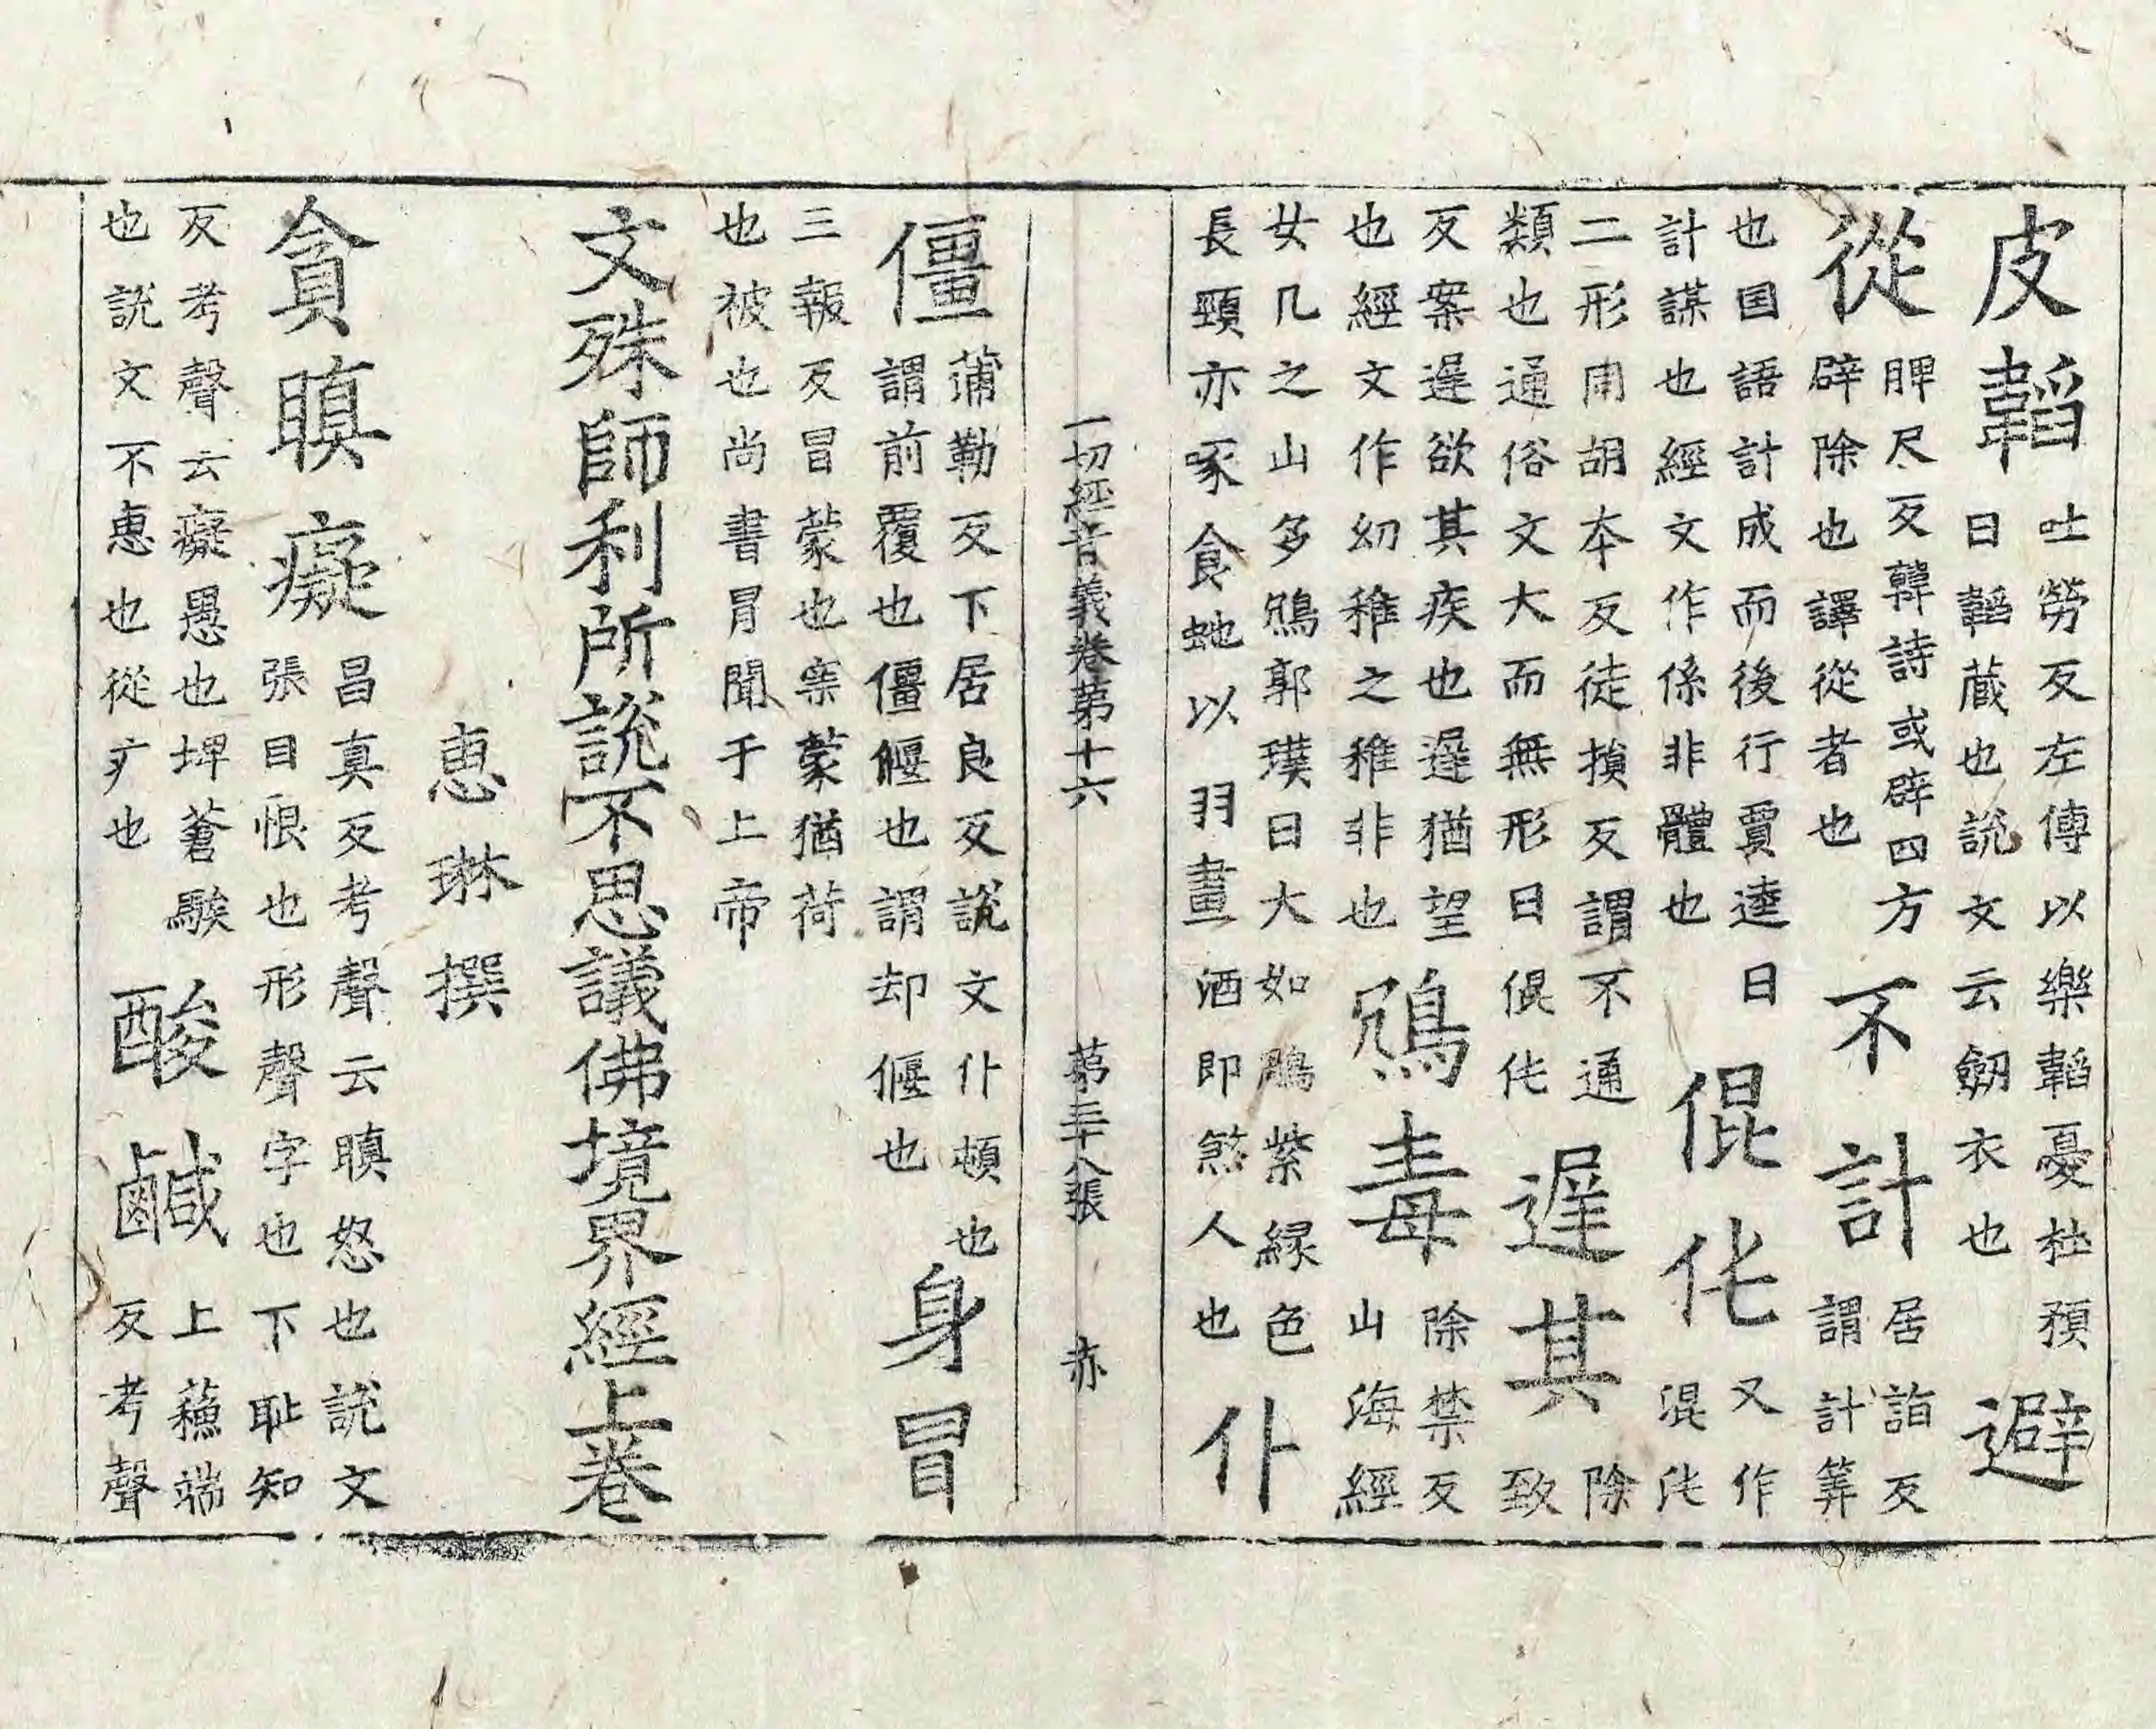 皮韜吐勞反左傳以樂韜憂杜預曰韜藏也說文云劒衣也避
從脾尺反韓詩或辟四方辟除也譯從者也不計居詣反謂計筭
也国語計成而後行賈逵曰計謀也經文作係非體也倱伅又作混沌
二形同胡本反徒損反謂不通類也通俗文大而無形曰倱伅遲其除致
反案遲欲其疾也遲猶望也經文作幼稚之稚非也鴆毒除禁反山海經
女几之山多鴆郭璞曰大如鵰紫緑色長頸亦啄食虵以羽畫酒即煞人也仆
一切經音義卷第十六 第三十八張 亦
僵蒲勒反下居良反說文仆頓也謂前覆也僵偃也謂却偃也身冒
三報反冒蒙也案蒙猶荷也被也尚書冐聞于上帝
文殊師利所說不思議佛境界經上卷
惠琳撰
貪瞋癡昌真反考聲云瞋怒也說文張目恨也形聲字也下耻知
反考聲云癡愚也埤蒼騃也說文不惠也從疒也酸鹹上蘓端反考聲